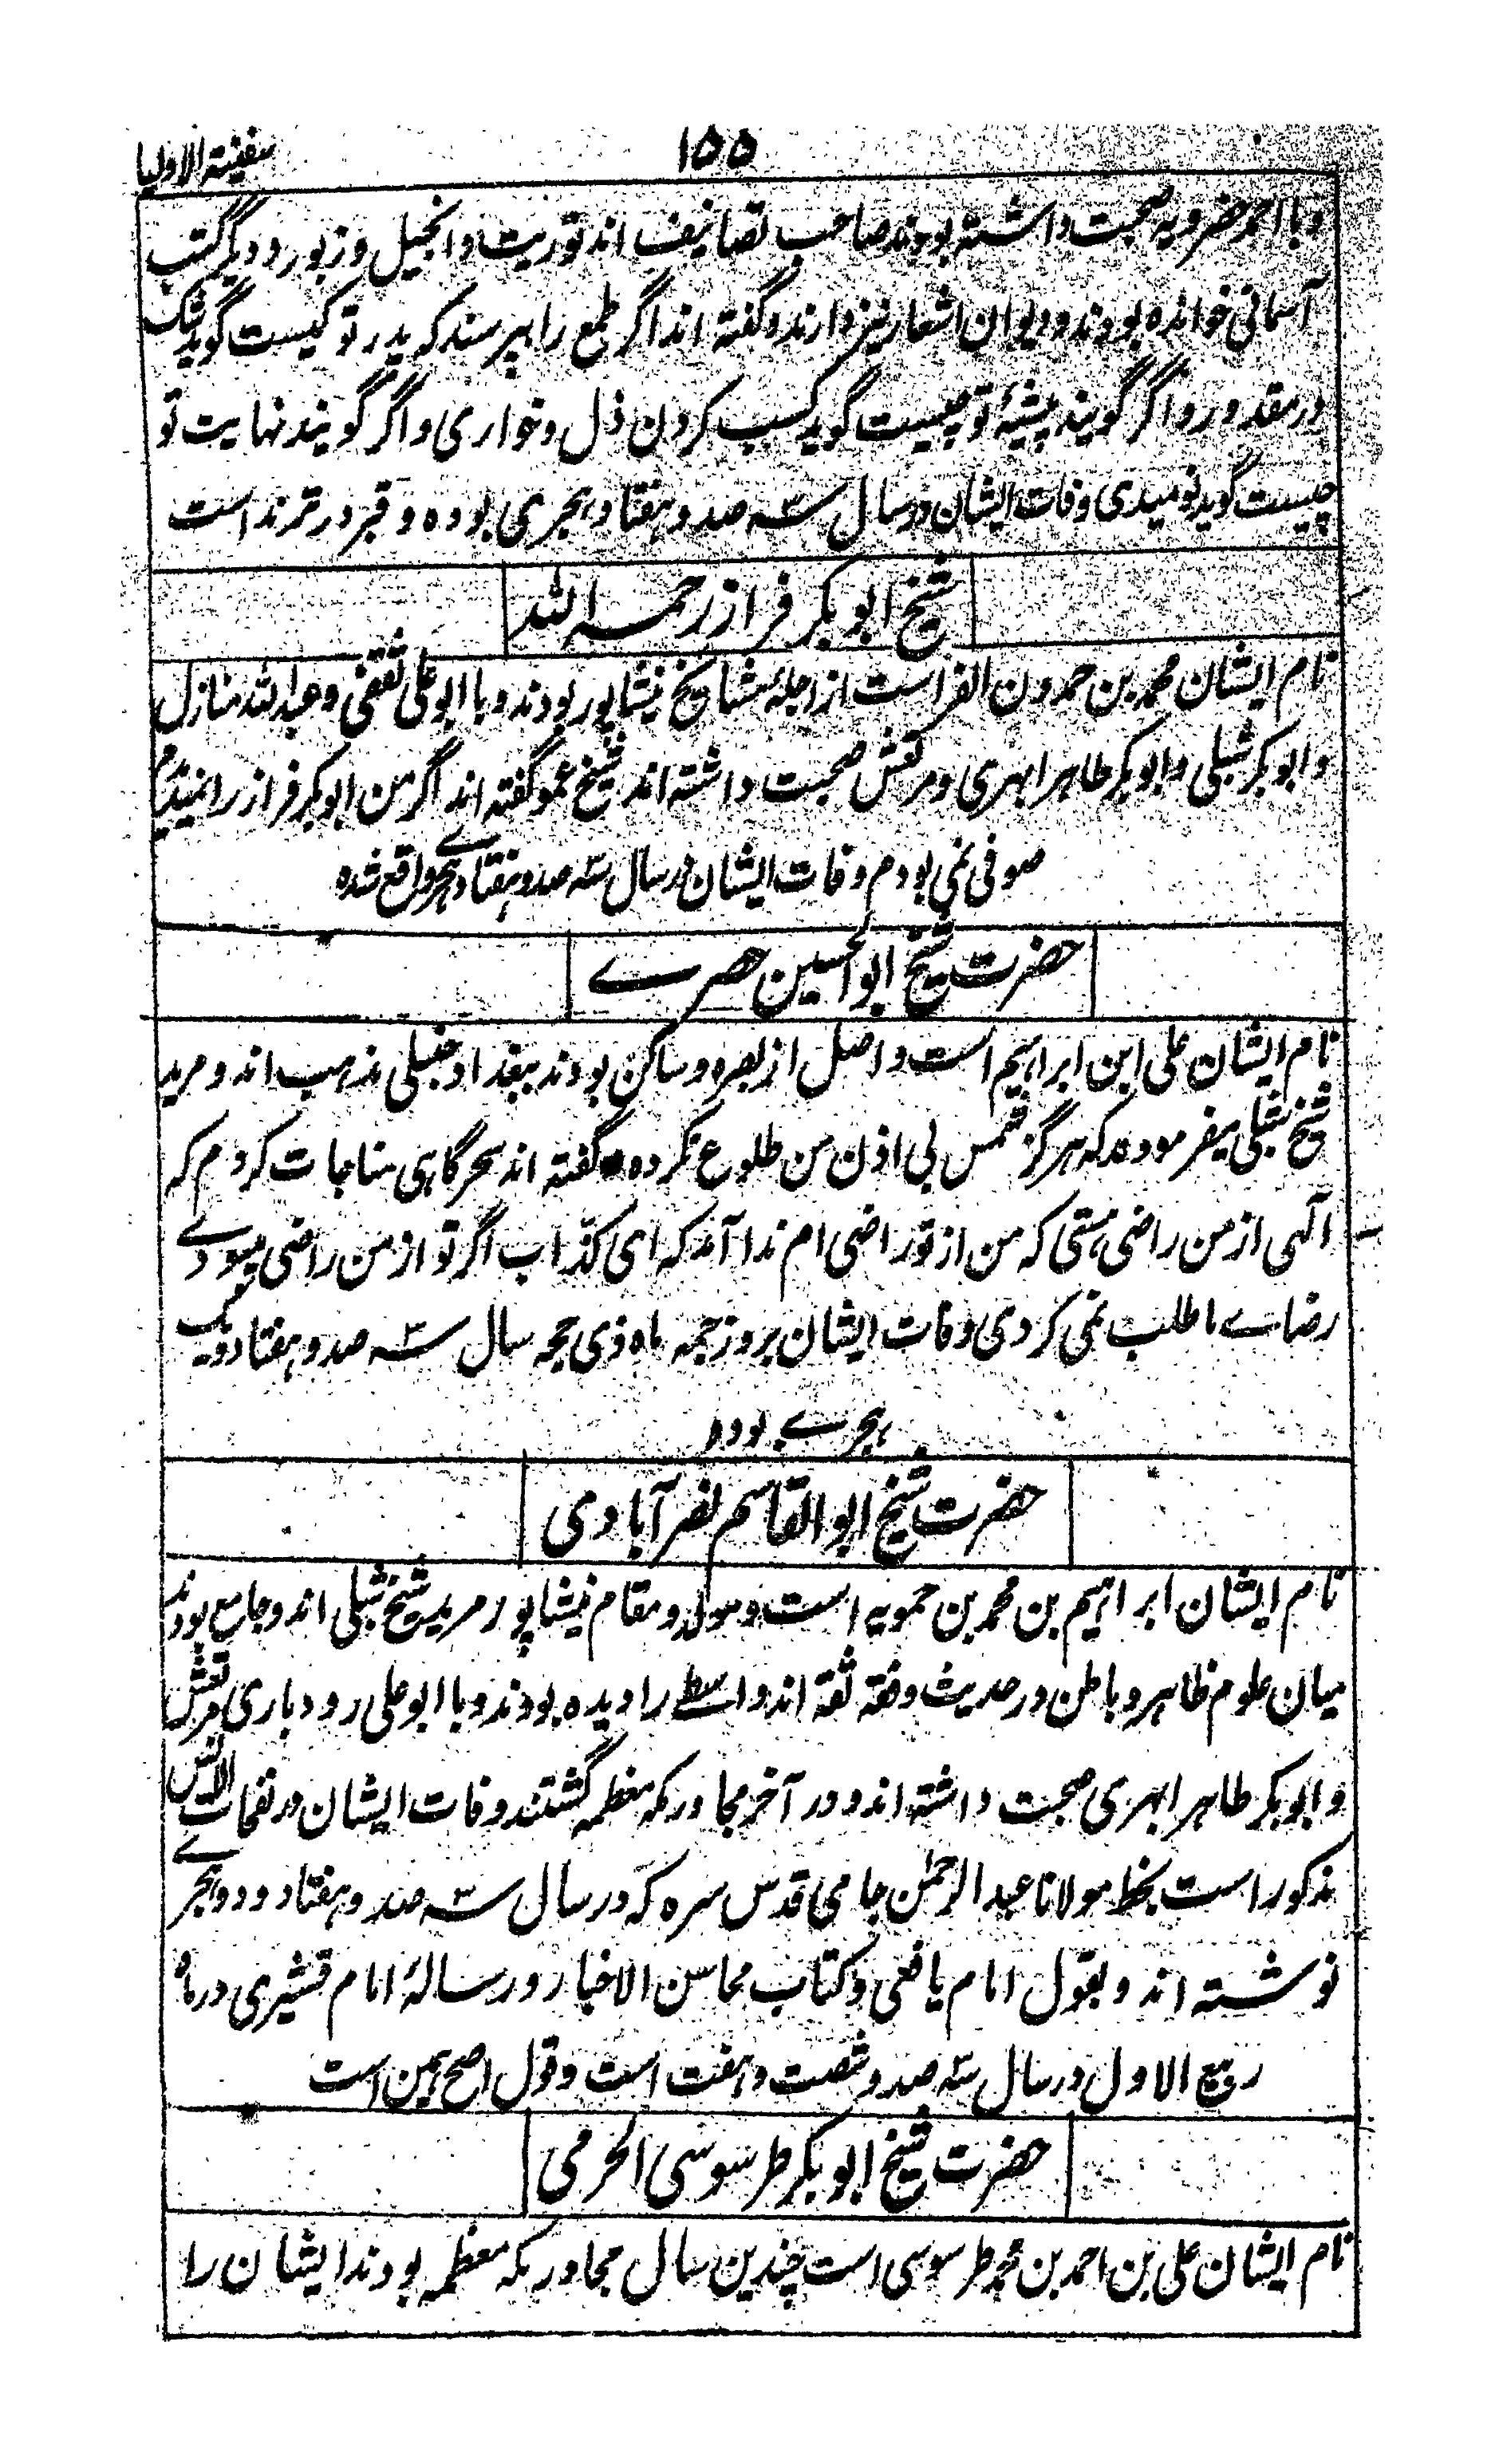 سفینۃ الاولیا
۱۵۵
وبا احمد خضرویہ صحبت داشتہ بودند صاحب تصانیف اند توریت و انجیل و زبور و دیگر کتب
آسمانی خواندہ بودند و دیوان اشعار نیز دارند و گفتہ اند اگر طمع را بپرسند کہ پدر تو کیست گوید شک
در مقدور و اگر گویند پیشۂ تو چیست گوید کسب کردن ذل و خواری و اگر گویند نہایت تو
چیست گوید نومیدی وفات ایشان در سال سہ صد و ہفتاد ہجری بودہ و قبر در ترمذ است
شیخ ابو بکر فراز رحمہ اللہ
نام ایشان محمد بن حمدون الفراست از اجلۂ مشایخ نیشاپور بودند و با ابو علی ثقفی و عبداللہ منازل
و ابو بکر شبلی و ابو بکر طاہر ابہری و مرتعش صحبت داشتہ اند شیخ عمو گفتہ اند اگر من ابو بکر فراز را نمیدیدم
صوفی نمی بودم وفات ایشان در سال سہ صد و ہفتاد ہجری واقع شدہ
حضرت شیخ ابو الحسین حصرے
نام ایشان علی ابن ابراہیم است و اصل از بصرہ و ساکن بودند ببغداد حنبلی مذہب اند و مرید
شیخ شبلی میفرمودند کہ ہرگز شمس بی اذن من طلوع نکردہ گفتہ اند سحرگاہی مناجات کردم کہ
الہی از من راضی ہستی کہ من از تو راضی ام ندا آمد کہ ای کذّاب اگر تو از من راضی میبودے
رضاے ما طلب نمی کردی وفات ایشان بروز جمعہ ماہ ذی حجہ سال سہ صد و ہفتاد و یک
ہجرے بودہ
حضرت شیخ ابو القاسم نصر آبادی
نام ایشان ابراہیم بن محمد بن حمویہ است و مولد و مقام نیشاپور مرید شیخ شبلی اند و جامع بودند
میان علوم ظاہر و باطن در حدیث و فقہ ثقہ اند واسطے را دیدہ بودند و با ابو علی رودباری و مرتعش
و ابو بکر طاہر ابہری صحبت داشتہ اند و در آخر مجاور مکہ معظمہ گشتند وفات ایشان در نفحات الانس
مذکور است بخط مولانا عبد الرحمٰن جامی قدس سرہ کہ در سال سہ صد و ہفتاد و دو ہجرے
نوشتہ اند و بقول امام یافعی و کتاب محاسن الاخبار و رسالۂ امام قشیری در ماہ
ربیع الاول در سال سہ صد و شصت و ہفت است و قول اصح ہمین است
حضرت شیخ ابو بکر طرسوسی الحرمی
نام ایشان علی بن احمد بن محمد طرسوسی است چندین سال مجاور مکہ معظمہ بودند ایشان را